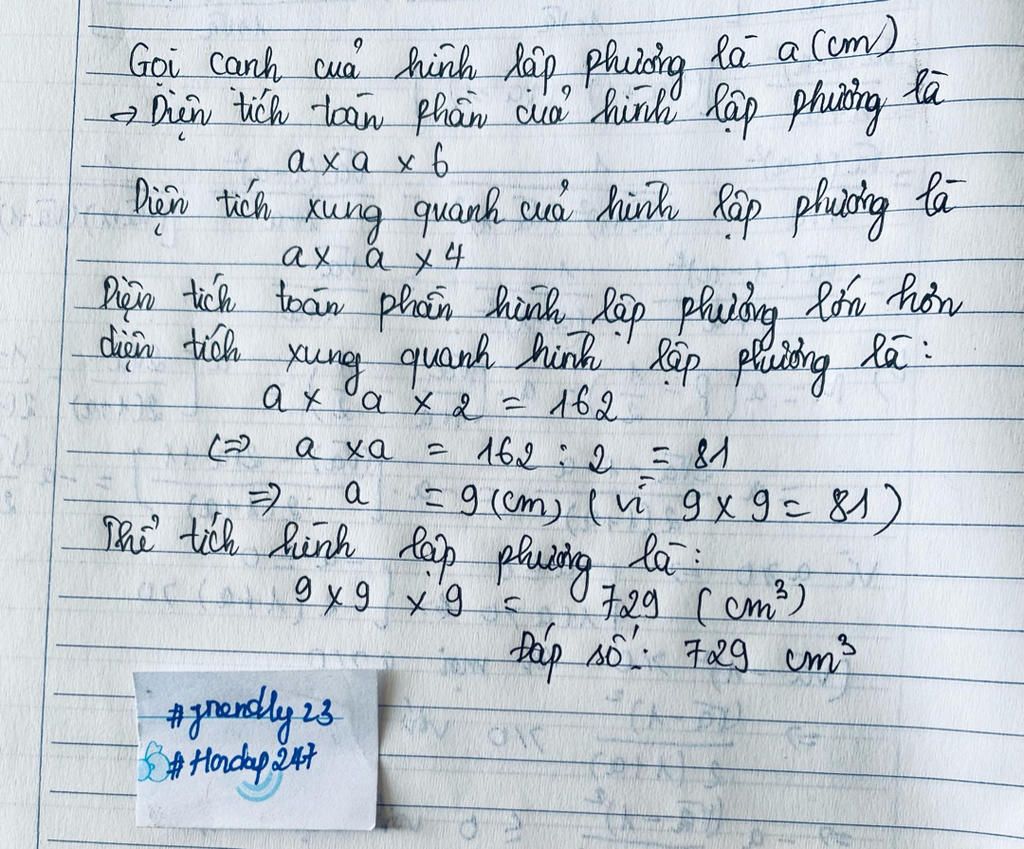 Gọi cạnh của hình lập phương là a (cm)
→ Diện tích toàn phần của hình lập phương là
a x a x 6
Diện tích xung quanh của hình lập phương là
a x a x 4
Diện tích toàn phần hình lập phương lớn hơn
diện tích xung quanh hình lập phương là:
a x a x 2 = 162
(=> a x a = 162 : 2 = 81
=> a = 9 (cm) (vì 9 x 9 = 81)
Thể tích hình lập phương là:
9 x 9 x 9 = 729 (cm³)
Đáp số: 729 cm³
#Hoidap247